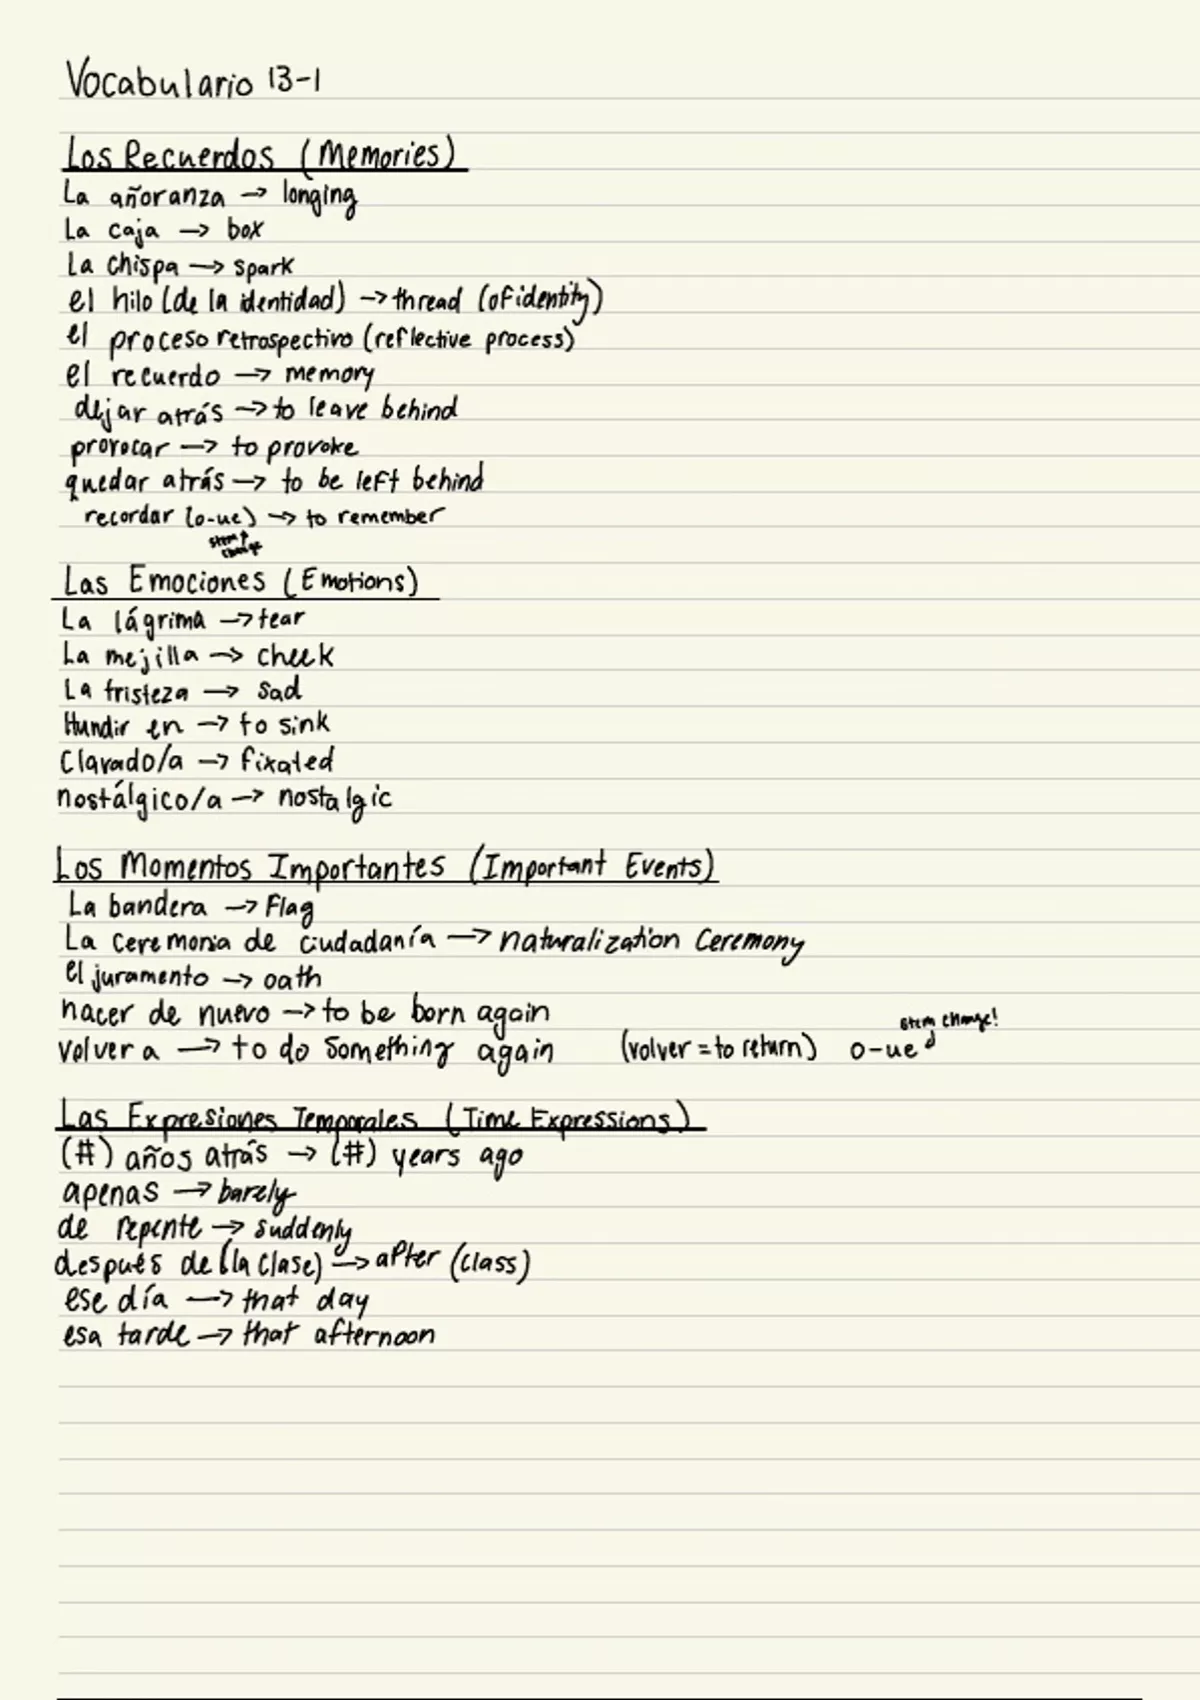 Vocabulario 13-1
Los Recuerdos (Memories)
La añoranza → longing
La caja → box
La chispa → spark
el hilo (de la identidad) → thread (of identity)
el proceso retrospectivo (reflective process)
el recuerdo → memory
dejar atrás → to leave behind
provocar → to provoke
quedar atrás → to be left behind
recordar (o-ue) → to remember
stem ↑
change
Las Emociones (Emotions)
La lágrima → tear
La mejilla → cheek
La tristeza → sad
Hundir en → to sink
Clavado/a → fixated
nostálgico/a → nostalgic
Los Momentos Importantes (Important Events)
La bandera → Flag
La ceremonia de ciudadanía → naturalization Ceremony
el juramento → oath
nacer de nuevo → to be born again
stem change!
volver a → to do something again (volver = to return) o-ue
Las Expresiones Temporales (Time Expressions)
(#) años atrás → (#) years ago
apenas → barely
de repente → suddenly
después de (la clase) → after (class)
ese día → that day
esa tarde → that afternoon